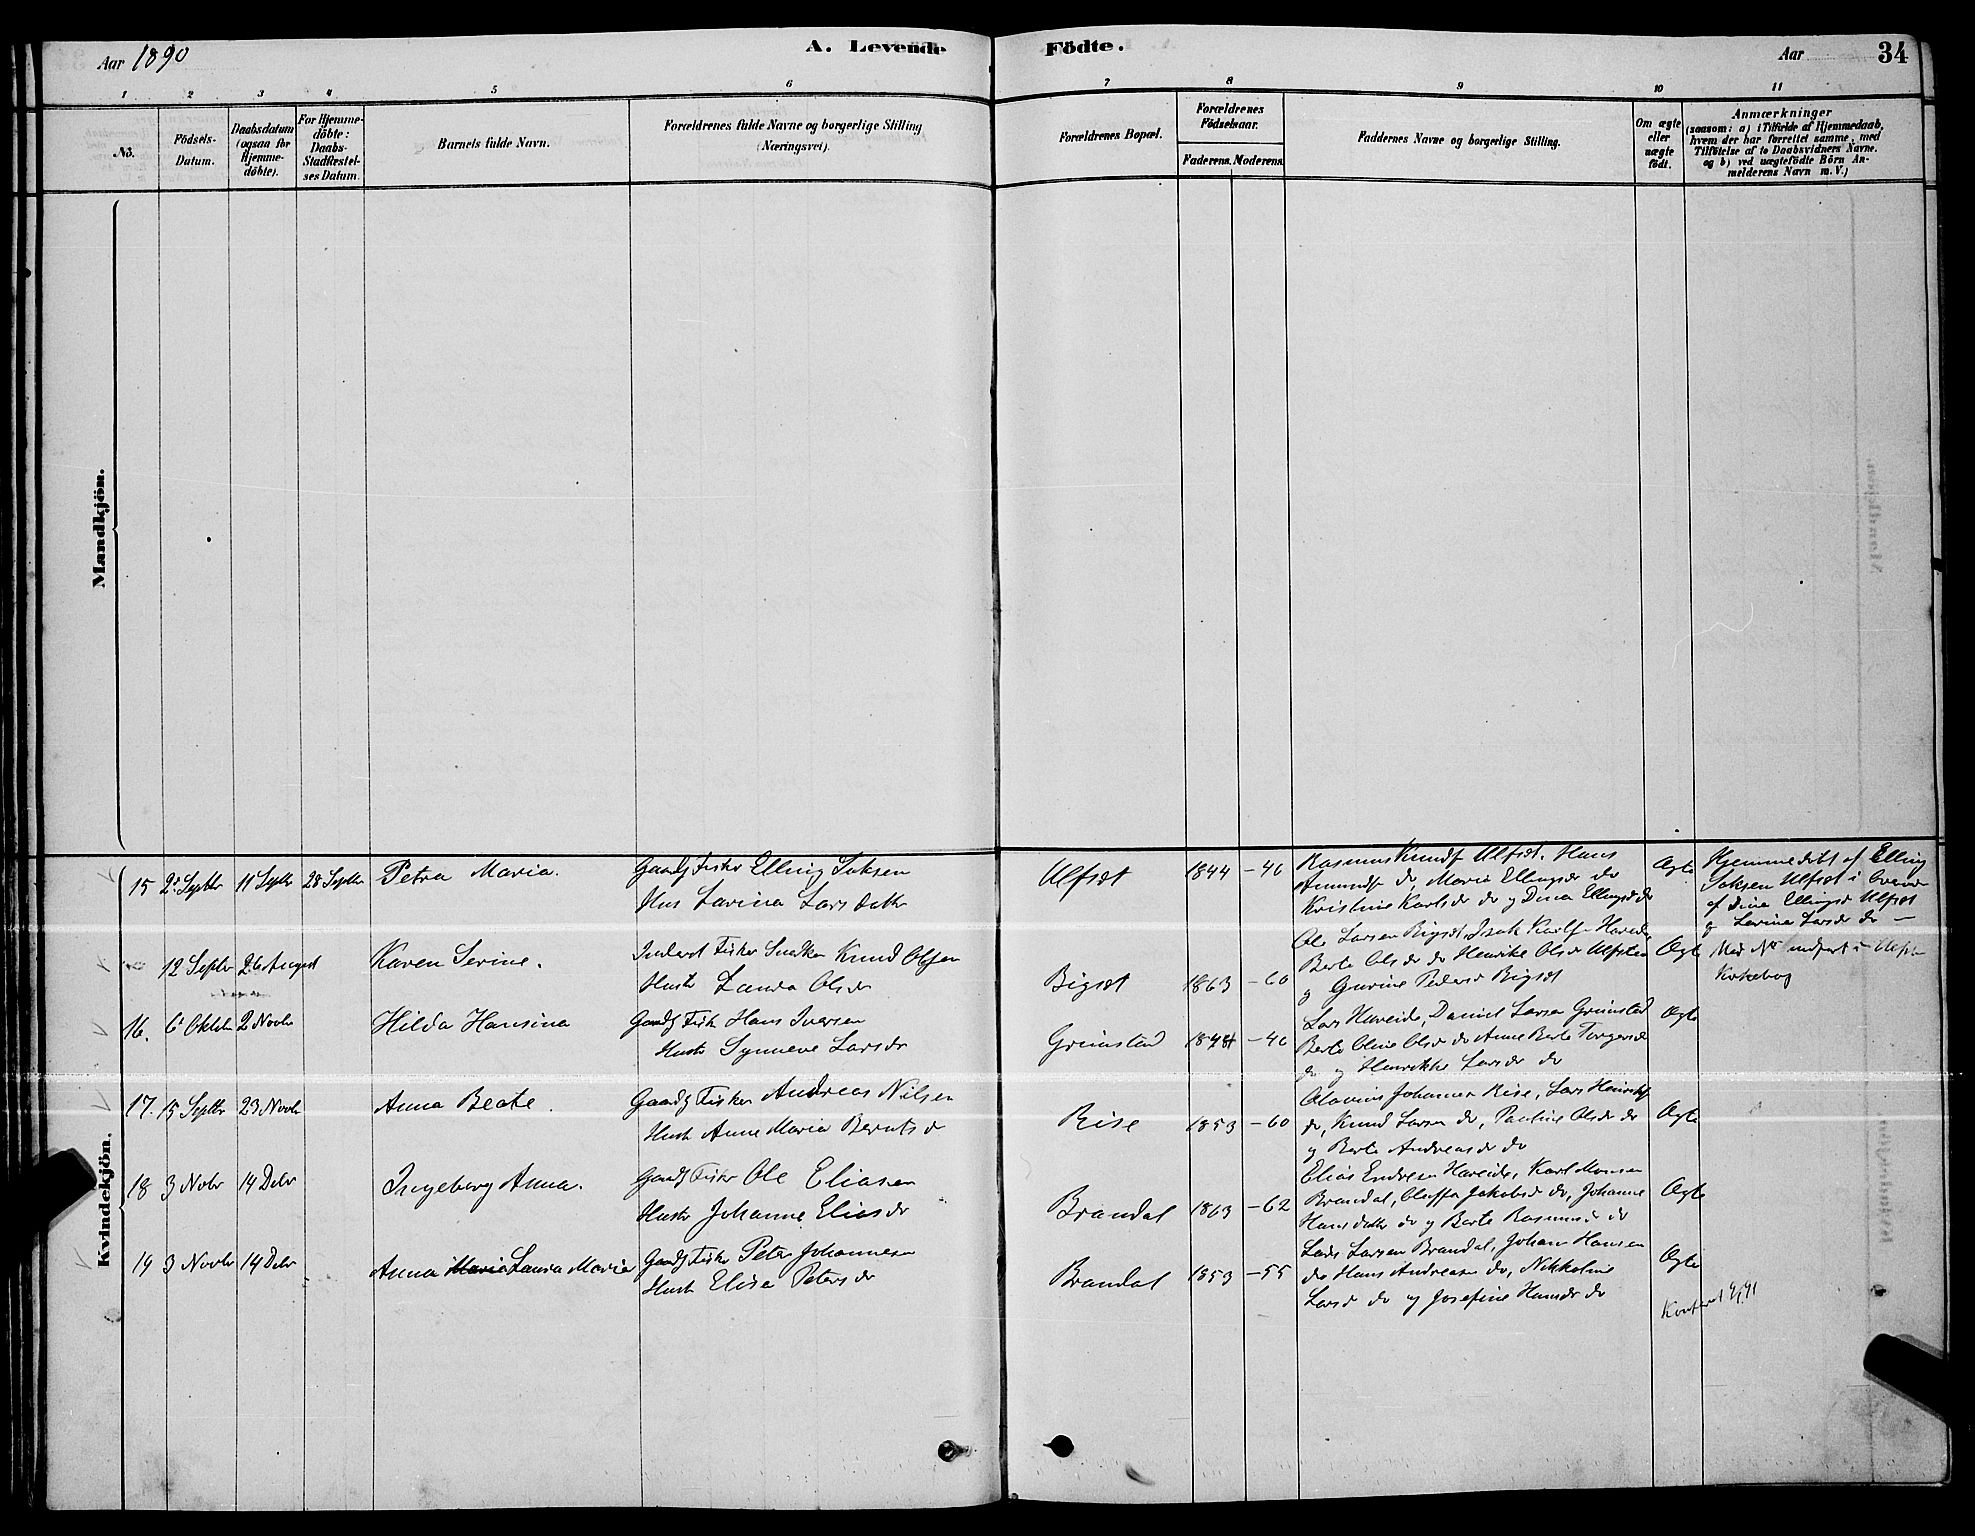 Aar 1890
A. Levende Födte.
Aar
34
1 2 3 4 5 6 7 8 9 10 11
Nó.
Födsels-
Datum.
Daabsdatum
(ogsaa för
Hjemme-
döbte).
For Hjemme-
döbte:
Daabs-
Stadfæstel-
ses Datum.
Barnets fulde Navn.
Forældrenes fulde Navne og borgerlige Stilling
(Næringsvei).
Forældrenes Bopæl.
Forældrenes
Födselsaar.
Faderens. Moderens.
Faddernes Navne og borgerlige Stilling.
Om ægte
eller
uægte
födt.
Anmærkninger
(saasom: a) i Tilfælde af Hjemmedaab,
hvem der har forrettet samme, med
Tilföielse af to Daabsvidners Navne.
og b) ved uægtefödte Börn An-
melderens Navn m. V.)
Mandkjön.
Kvindekjön.
15 2 Septbr 11 Septbr 28 Septbr Petra Maria.
Gaardf Fisker Elling Saksen
Hus Lavina Larsdatter
Ulfsæt 1844 -46
Rasmus Knudf Ulfsæt. Hans
Amundf do, Marie Ellingsdr do
Kristine Karlsdr do og Dina Ellingsdr do
Ægte
Hjemmedöbt af Elling
Saksen Ulfsæt i
af Dina Ellingsd Ulfsæt
og Lavina Larsdr do
12 Septbr 26 August Karen Serine.
Inderst Fisker Snedker Knud Olsen
Hustr Landa Olsdr
Bigsæt 1863 -60
Ole Larsen Bigsæt, Isak Karlf Hareide,
Berte Olsdr do Henrike Olsd Ulfsten
og Gurine Pedersd Bigsæt
Ægte
Med No indfört i
Kirkebog
16. 6 Oktbr 2 Novbr Hilda Hansina
Gaardf Fisk Hans Iversen
Hustr Synneve Larsdr
Grimstad 1848 -46
Lars Hareide, Daniel Larsen Grimstad
Berte Oline Olsdr do Anne Berte Torgersdr
do og Henrikke Larsdr do
Ægte
17. 15 Septbr 23 Novbr Anna Beate.
Gaardf Fisker Andreas Nilsen
Hustr Anne Maria Berntsd
Rise 1853 -60
Olavius Johansen Rise, Lars Henrikf
do, Knud Larsen do, Pauline Olsdr do
og Berte Andreasdr do
Ægte
18 3 Novbr 14 Debr Ingeborg Anna.
Gaardf Fisker Ole Eliasen
Hustr Johanne Eliasdr
Brandal 1863 -62
Elias Endresen Hareide, Karl Monsen
Brandal, Oluffa Jakobsd do, Johanne
Hansdatter do og Berte Rasmusd do
Ægte
19 3 Novbr 14 Debr Anna Maria Laura Maria
Gaardf Fisker Peter Johannesen
Hustr Elisa Petersdr
Brandal 1853 -55
Lars Larsen Brandal, Johan Hansen
do Hans Andreasen do, Nikkoline
Larsd do og Josefine Hansdr do
Ægte